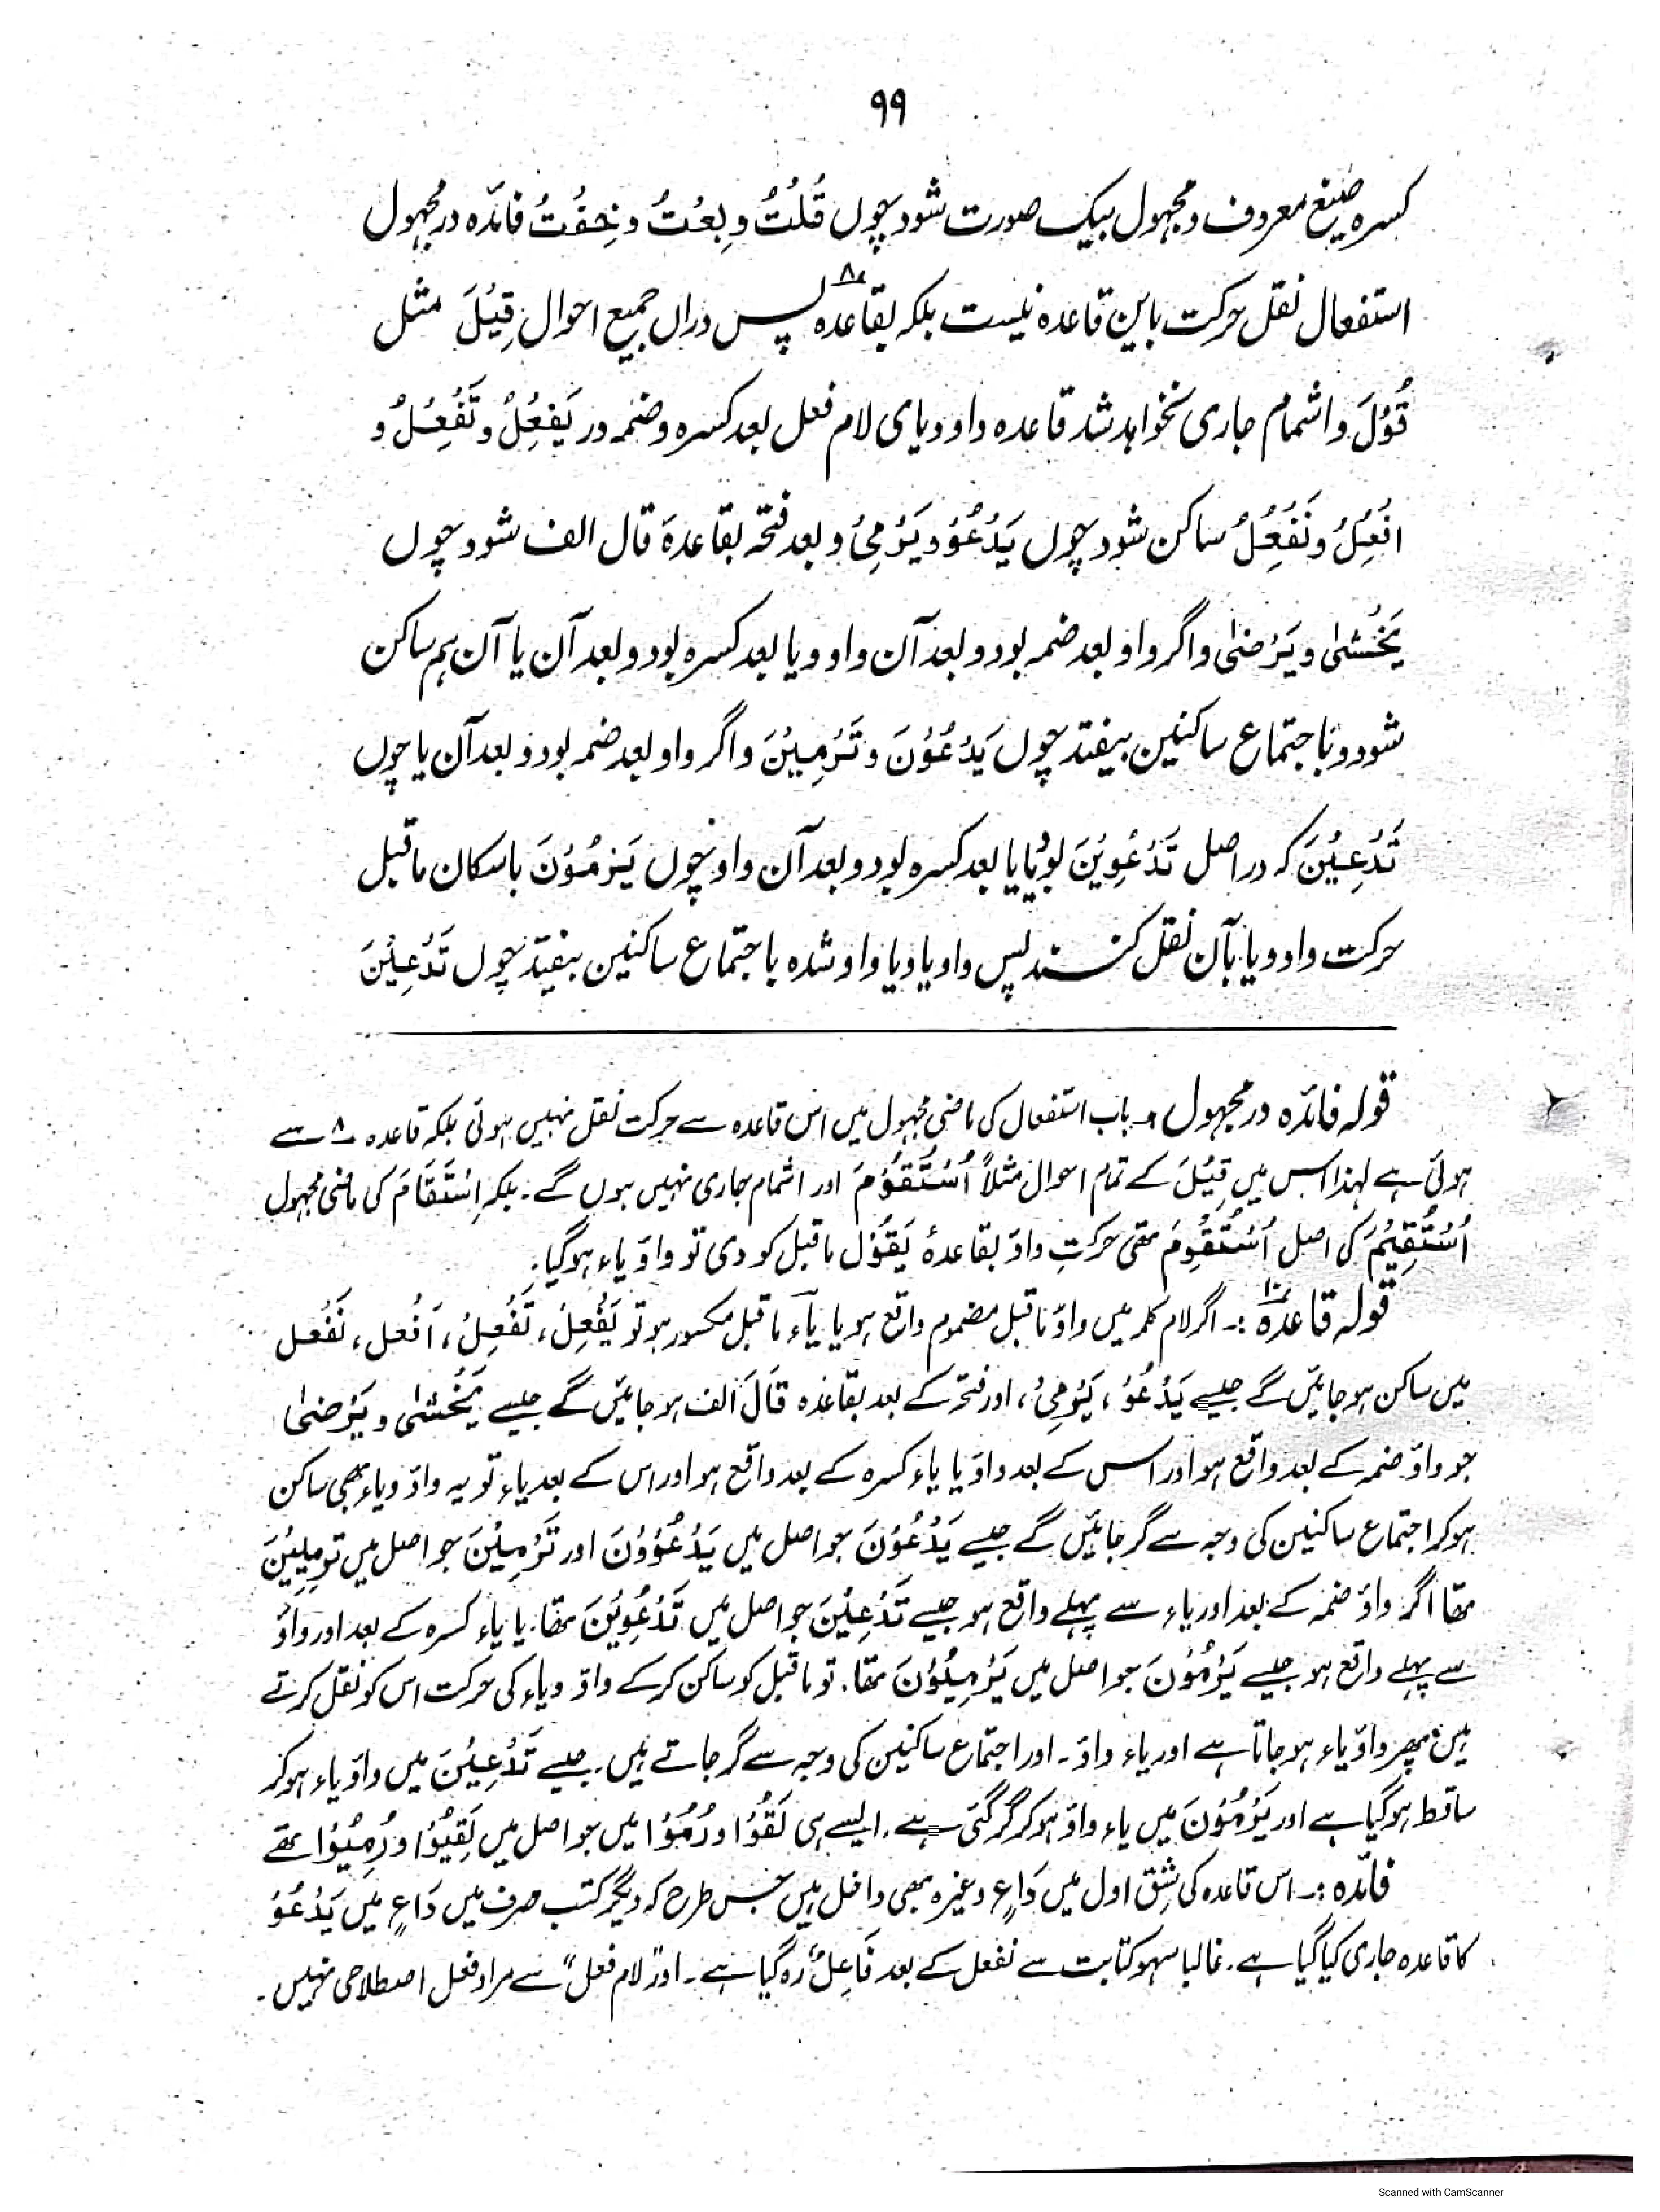 ۹۹
کسرہ صیغ معروف و مجہول بیک صورت شود چوں قُلْتُ و بِعْتُ و خِفْتُ فائدہ در مجہول
استفعال نقل حرکت باین قاعدہ نیست بلکہ بقاعدہ ۸ پس دراں جمیع احوال قِیْلَ مثل
قُوْلَ و اشمام جاری نخواہد شد قاعدہ واو ویای لام فعل بعد کسرہ و ضمہ در یَفْعِلُ و تَفْعِلُ و
اَفْعِلُ و نَفْعِلُ ساکن شود چوں یَدْعُوْ و یَرْمِیْ و بعد فتحہ بقاعدۂ قال الف شود چوں
یَخْشٰی و یَرْضٰی و اگر واو بعد ضمہ بود و بعد آن واو و یا بعد کسرہ بود و بعد آن یا آن ہم ساکن
شود و با جتماع ساکنین بیفتد چوں یَدْعُوْنَ و تَرْمِیْنَ و اگر واو بعد ضمہ بود و بعد آن یا چوں
تَدْعِیْنَ کہ در اصل تَدْعُوِیْنَ بود یا یا بعد کسرہ بود و بعد آن واو چوں یَرْمُوْنَ باسکان ماقبل
حرکت واو و یا بآن نقل کنند پس واو یا و یا واو شدہ با جتماع ساکنین بیفتد چوں تَدْعِیْنَ
قولہ فائدہ در مجہول :۔ باب استفعال کی ماضی مجہول میں اس قاعدہ سے حرکت نقل نہیں ہوتی بلکہ قاعدہ ۸ سے
ہوتی ہے لہذا اس میں قِیْلَ کے تمام احوال مثلاً اُسْتُقُوْمَ اور اشمام جاری نہیں ہوں گے۔ بلکہ اِسْتَقَامَ کی ماضی مجہول
اُسْتُقِیْمَ کی اصل اُسْتُقْوِمَ تھی حرکتِ واؤ بقاعدۂ یَقُوْل ماقبل کو دی تو واؤ یاء ہوگیا۔
قولہ قاعدہ ۱۰ :۔ اگر لام کلمہ میں واؤ ماقبل مضموم واقع ہو یا یاء ماقبل مکسور ہو تو یَفْعِلُ، تَفْعِلُ، اَفْعل، نَفْعل
میں ساکن ہو جائیں گے جیسے یَدْعُوْ، یَرْمِیْ، اور فتحہ کے بعد بقاعدہ قَالَ الف ہو جائیں گے جیسے یَخْشٰی و یَرْضٰی
جو واؤ ضمہ کے بعد واقع ہو اور اس کے بعد واؤ یا یاء کسرہ کے بعد واقع ہو اور اس کے بعد یاء تو یہ واؤ ویاء بھی ساکن
ہوکر اجتماع ساکنین کی وجہ سے گر جائیں گے جیسے یَدْعُوْنَ جو اصل میں یَدْعُوُوْنَ اور تَرْمِیْنَ جو اصل میں تَرْمِیِیْنَ
تھا اگر واؤ ضمہ کے بعد اور یاء سے پہلے واقع ہو جیسے تَدْعِیْنَ جو اصل میں تَدْعُوِیْنَ تھا۔ یا یاء کسرہ کے بعد اور واؤ
سے پہلے واقع ہو جیسے یَرْمُوْنَ جو اصل میں یَرْمِیُوْنَ تھا۔ تو ماقبل کو ساکن کرکے واؤ ویاء کی حرکت اس کو نقل کرتے
ہیں پھر واؤ یاء ہو جاتا ہے اور یاء واؤ۔ اور اجتماع ساکنین کی وجہ سے گر جاتے ہیں۔ جیسے تَدْعِیْنَ میں واؤ یاء ہوکر
ساقط ہوگیا ہے اور یَرْمُوْنَ میں یاء واؤ ہوکر گر گئی ہے۔ ایسے ہی لَقُوْا و رُمُوْا میں جو اصل میں لَقِیُوْا و رُمِیُوْا تھے
فائدہ :۔ اس قاعدہ کی شِق اول میں دَاعٍ وغیرہ بھی داخل ہیں جس طرح کہ دیگر کتب صرف میں دَاعٍ میں یَدْعُوْ
کا قاعدہ جاری کیا گیا ہے۔ غالبا سہو کتابت سے نفعل کے بعد فَاعِلٌ رہ گیا ہے۔ اور "لام فعل" سے مراد فعل اصطلاحی نہیں۔
Scanned with CamScanner